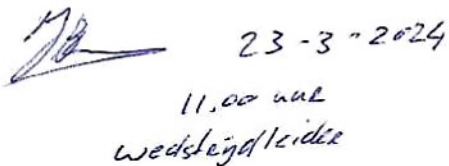 23-3-2024
11.00 uur
wedstrijdleider